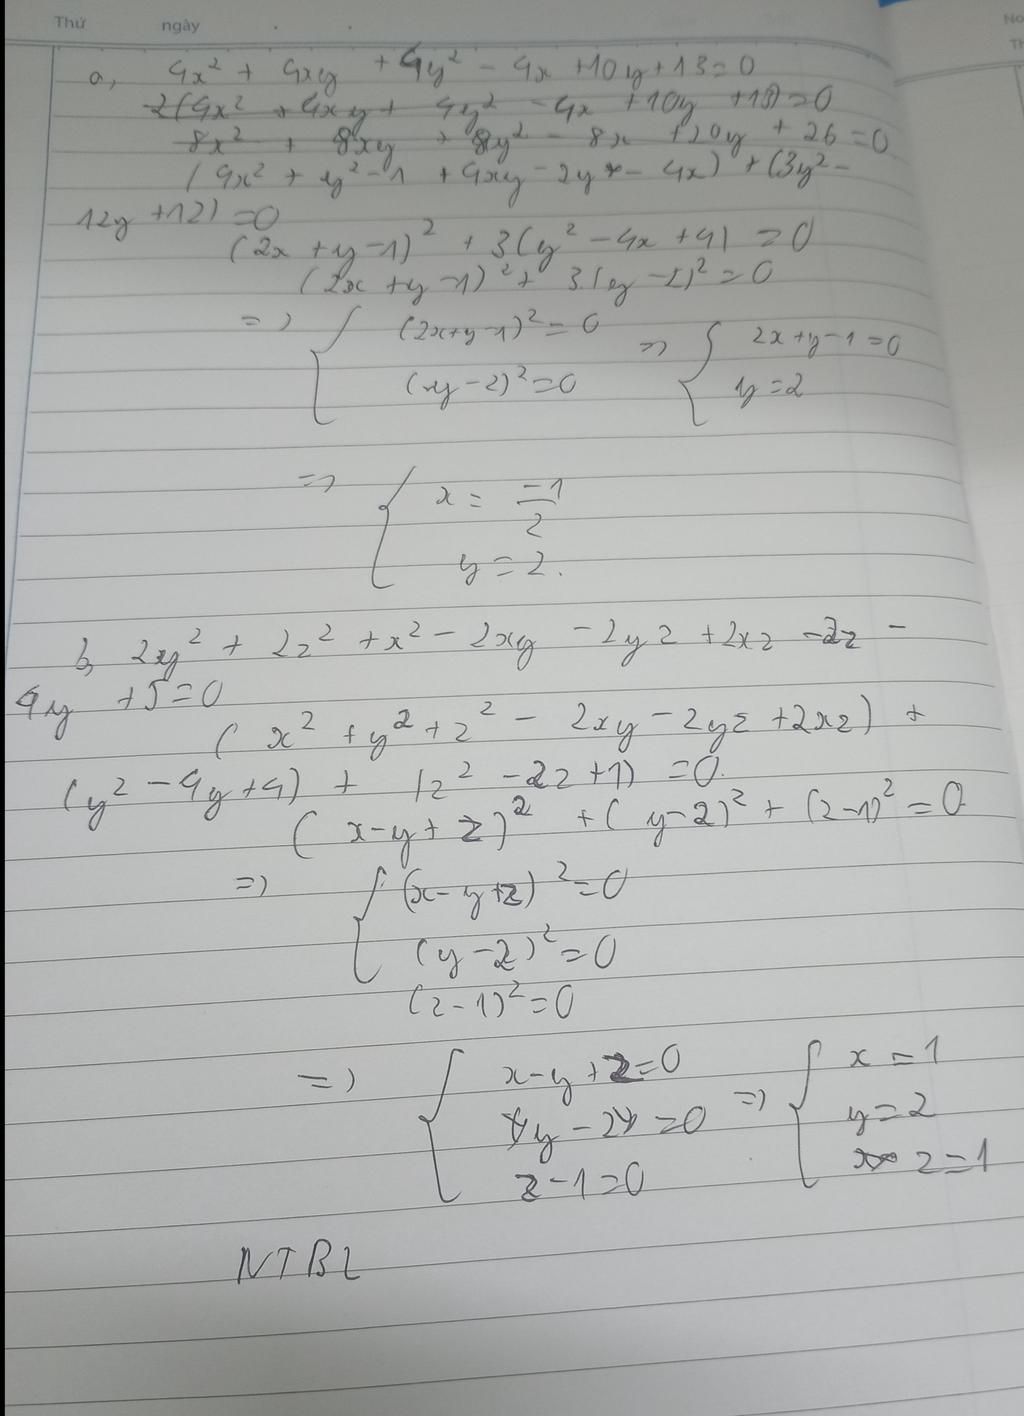 Thứ ngày
No
Th
a, 4x² + 4xy + 4y² - 4x + 10y + 13 = 0
2(4x² + 4xy + 4y² - 4x + 10y + 13) = 0
8x² + 8xy + 8y² - 8x + 20y + 26 = 0
(4x² + y² - 1 + 4xy - 2y - 4x) + (3y² -
12y + 12) = 0
(2x + y - 1)² + 3(y² - 4x + 4) = 0
(2x + y - 1)² + 3(y - 2)² = 0
=> { (2x + y - 1)² = 0 => { 2x + y - 1 = 0
(y - 2)² = 0 y = 2
=> { x = -1/2
y = 2.
b, 2y² + 2z² + x² - 2xy - 2yz + 2xz - 2z -
4y + 5 = 0
(x² + y² + z² - 2xy - 2yz + 2xz) +
(y² - 4y + 4) + (z² - 2z + 1) = 0.
(x - y + z)² + (y - 2)² + (z - 1)² = 0
=> { (x - y + z)² = 0
(y - 2)² = 0
(z - 1)² = 0
=> { x - y + z = 0 => { x = 1
y - 2 = 0 y = 2
z - 1 = 0 z = 1
NTBL